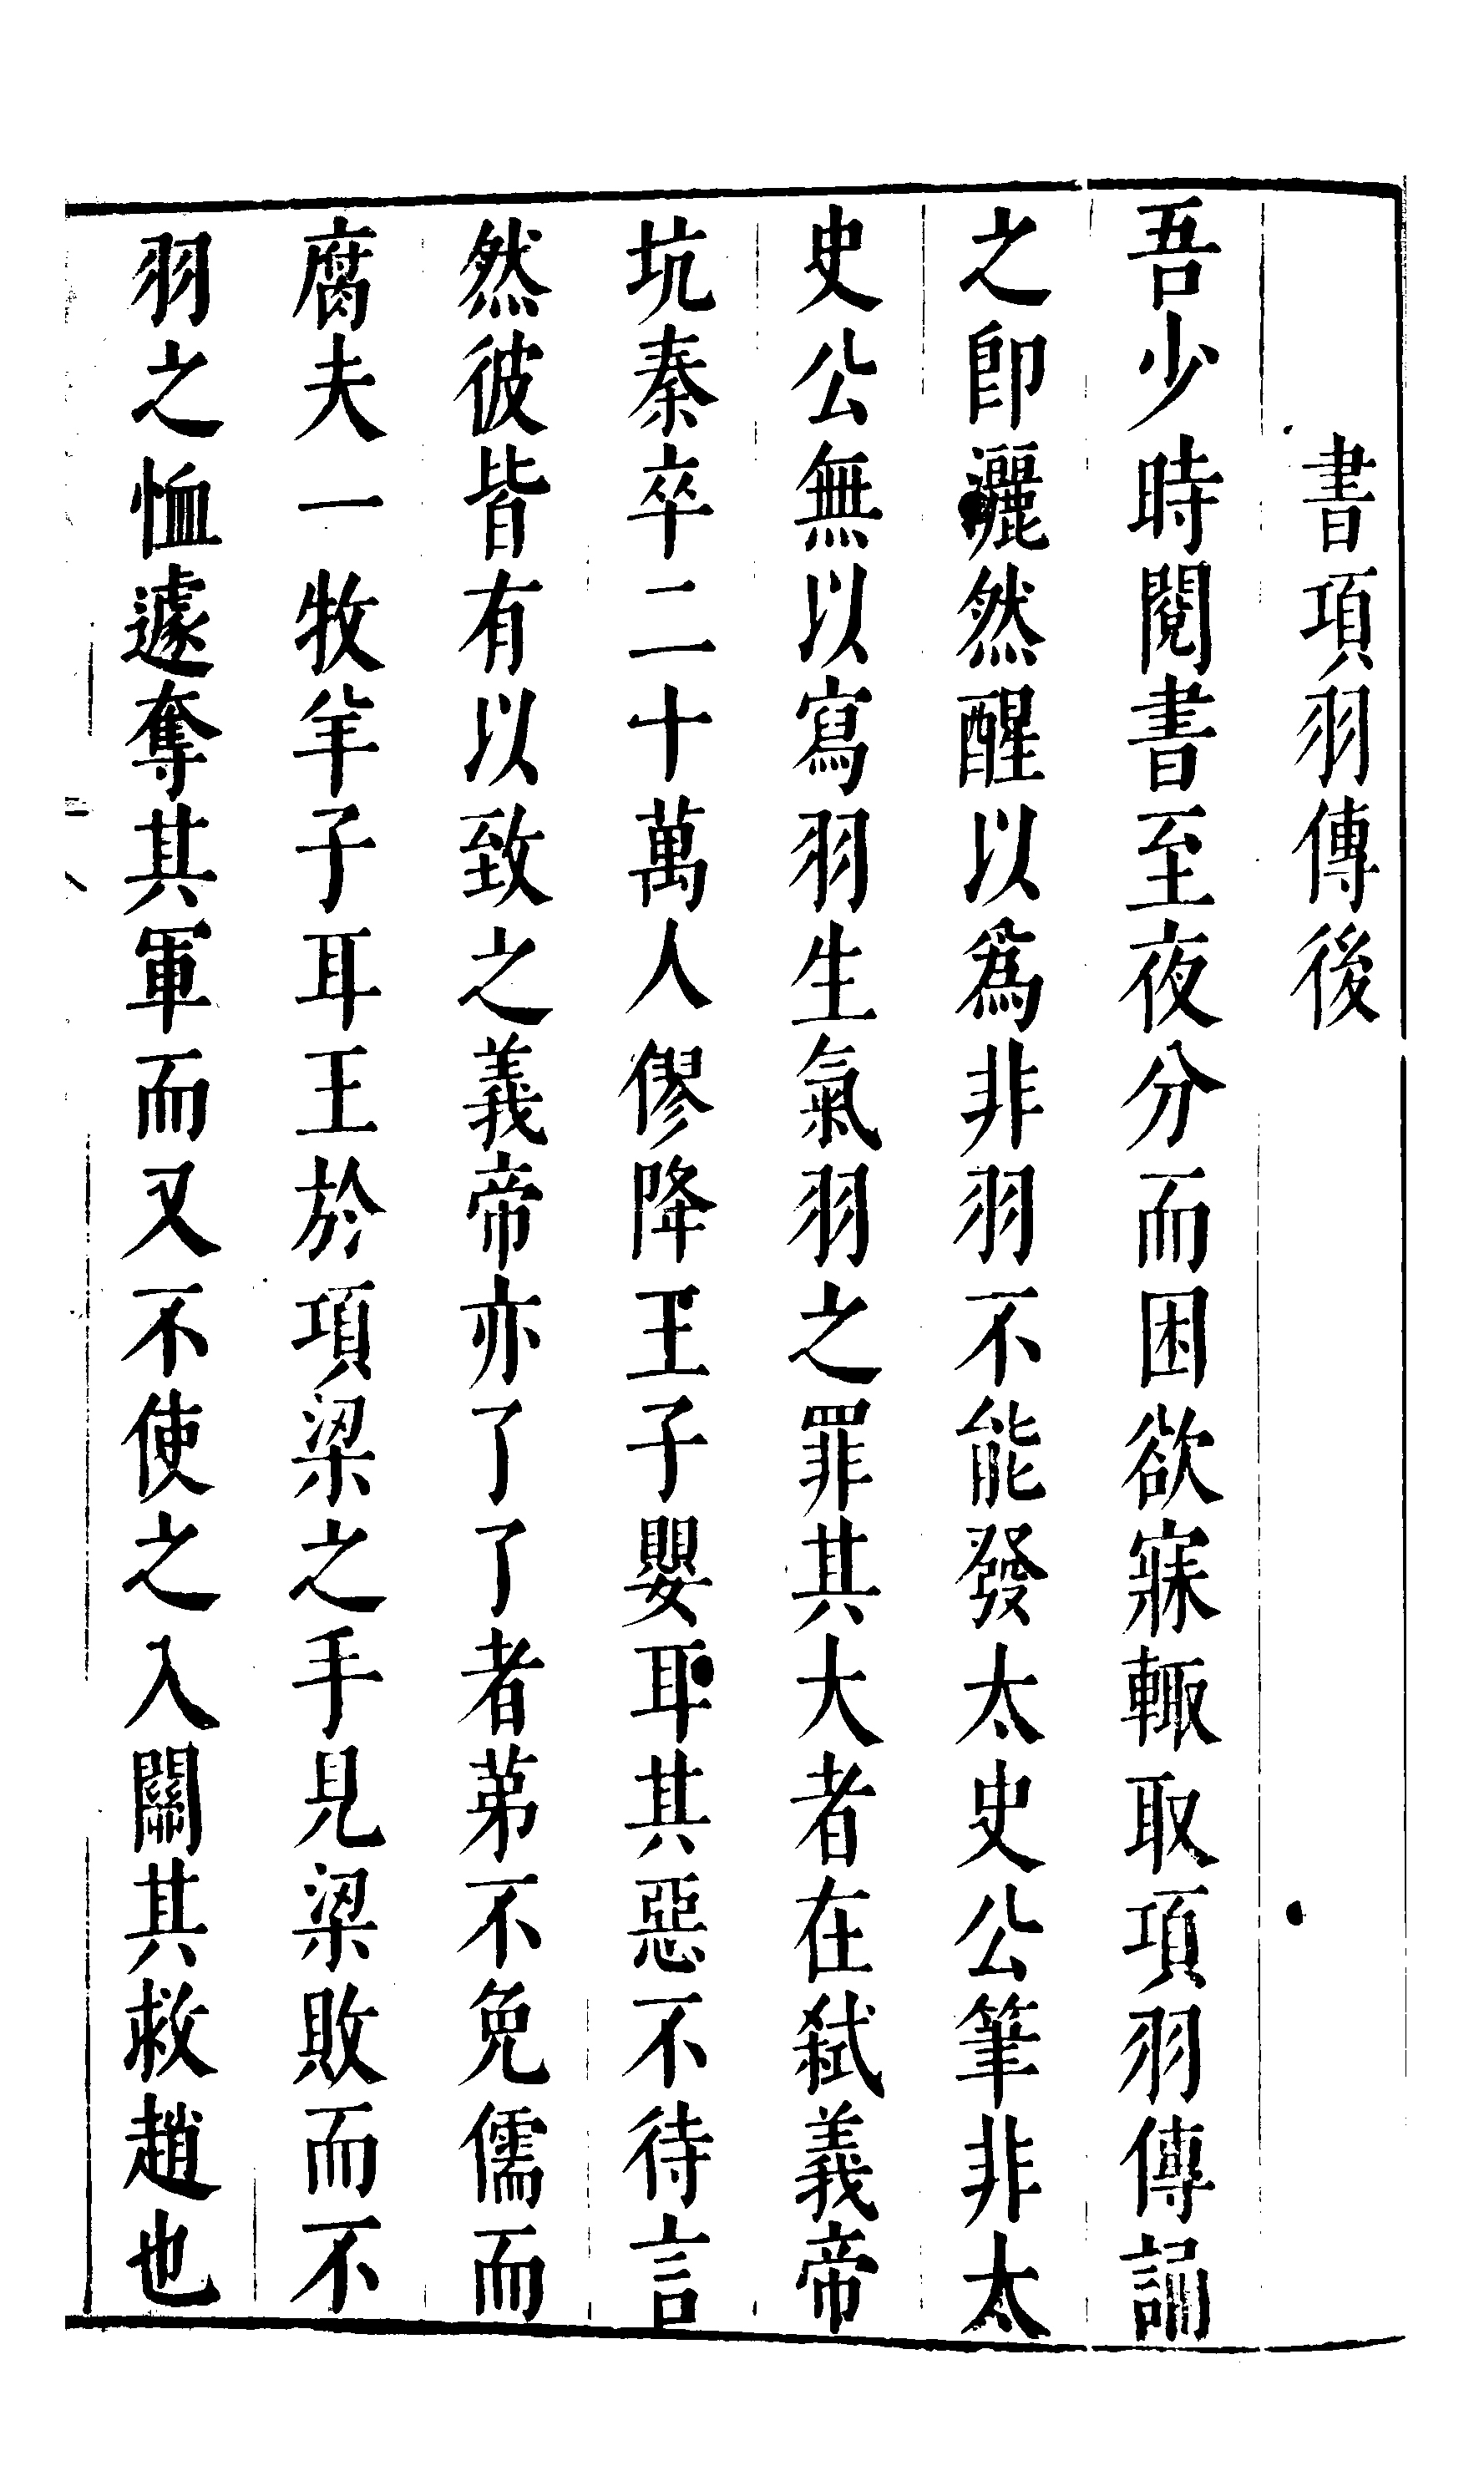 書項羽傳後
吾少時閱書至夜分而困欲寐輙取項羽傳誦
之卽灑然醒以爲非羽不能發太史公筆非太
史公無以寫羽生氣羽之罪其大者在弑義帝
坑秦卒二十萬人僇降王子嬰耳其惡不待言
然彼皆有以致之義帝亦了了者苐不免儒而
腐夫一牧羊子耳王於項梁之手見梁敗而不
羽之恤遽奪其軍而又不使之入關其救趙也